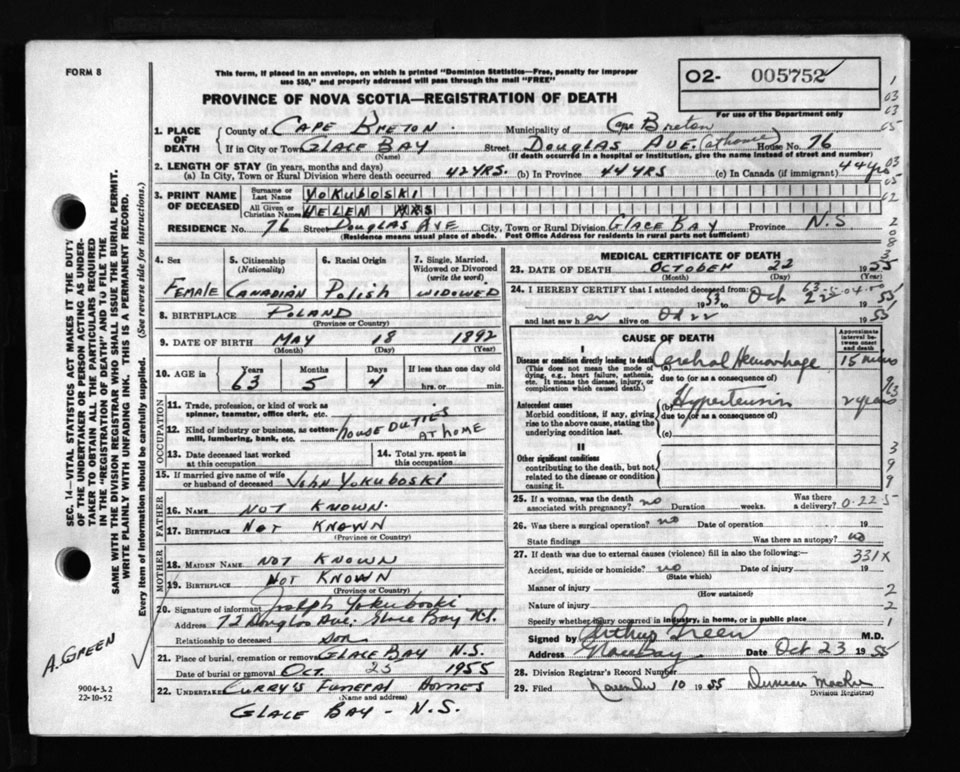 FORM 8
This form, if placed in an envelope, on which is printed "Dominion Statistics—Free, penalty for improper
use $50," and properly addressed will pass through the mail "FREE"
O2- 005752
For use of the Department only
PROVINCE OF NOVA SCOTIA—REGISTRATION OF DEATH
1. PLACE OF DEATH
County of CAPE BRETON. Municipality of Cape Breton
If in City or Town GLACE BAY Street DOUGLAS AVE. (at home) House No. 76
(Name) (If death occurred in a hospital or institution, give the name instead of street and number)
2. LENGTH OF STAY (in years, months and days)
(a) In City, Town or Rural Division where death occurred 42 YRS. (b) In Province 44 YRS (c) In Canada (if immigrant) 44 yrs
3. PRINT NAME OF DECEASED
Surname or Last Name YOKUBOSKI
All Given or Christian Names HELEN MRS
RESIDENCE No. 76 Street DOUGLAS AVE City, Town or Rural Division GLACE BAY Province N.S.
(Residence means usual place of abode. Post Office Address for residents in rural parts not sufficient)
4. Sex
FEMALE
5. Citizenship
(Nationality)
CANADIAN
6. Racial Origin
POLISH
7. Single, Married,
Widowed or Divorced
(write the word)
WIDOWED
8. BIRTHPLACE POLAND
(Province or Country)
9. DATE OF BIRTH MAY 18 1892
(Month) (Day) (Year)
10. AGE in Years Months Days If less than one day old
63 5 4 hrs. or min.
OCCUPATION
11. Trade, profession, or kind of work as
spinner, teamster, office clerk, etc.
12. Kind of industry or business, as cotton-
mill, lumbering, bank, etc.
HOUSE DUTIES
AT HOME
13. Date deceased last worked
at this occupation
14. Total yrs. spent in
this occupation
15. If married give name of wife
or husband of deceased John YOKUBOSKI
FATHER
16. NAME NOT KNOWN.
17. BIRTHPLACE NOT KNOWN
(Province or Country)
MOTHER
18. MAIDEN NAME NOT KNOWN
19. BIRTHPLACE NOT KNOWN
(Province or Country)
20. Signature of informant Joseph Yokuboski
Address 72 Douglas Ave. Glace Bay N.S.
Relationship to deceased son
21. Place of burial, cremation or removal GLACE BAY N.S.
Date of burial or removal OCT. 25 1955
22. UNDERTAKER CURRY'S FUNERAL HOMES
(Name and address)
GLACE BAY - N.S.
MEDICAL CERTIFICATE OF DEATH
23. DATE OF DEATH OCTOBER 22 1955
(Month) (Day) (Year)
24. I HEREBY CERTIFY that I attended deceased from:
1953 to Oct 22 1955
and last saw her alive on Oct 22 1955
CAUSE OF DEATH
Approximate
interval between
onset
and death
I
Disease or condition directly leading to death
(This does not mean the mode of
dying, e.g., heart failure, asthenia,
etc. It means the disease, injury, or
complication which caused death.)
(a) Cerebral Hemorrhage 15 mins
due to (or as a consequence of)
Antecedent causes
Morbid conditions, if any, giving
rise to the above cause, stating the
underlying condition last.
(b) Hypertension 2 years
due to (or as a consequence of)
(c)
II
Other significant conditions
contributing to the death, but not
related to the disease or condition
causing it.
25. If a woman, was the death
associated with pregnancy? no Duration weeks. Was there
a delivery? 0-22-5
26. Was there a surgical operation? no Date of operation 19
State findings Was there an autopsy? no
27. If death was due to external causes (violence) fill in also the following:— 331X
Accident, suicide or homicide? no Date of injury 19
(State which)
Manner of injury
(How sustained)
Nature of injury
Specify whether injury occurred in industry, in home, or in public place
Signed by Arthur Green M.D.
Address Glace Bay Date Oct 23 1955
28. Division Registrar's Record Number
29. Filed November 10 1955 Duncan
Division Registrar
SEC. 14—VITAL STATISTICS ACT MAKES IT THE DUTY
OF THE UNDERTAKER OR PERSON ACTING AS UNDER-
TAKER TO OBTAIN ALL THE PARTICULARS REQUIRED
IN THE "REGISTRATION OF DEATH" AND TO FILE THE
SAME WITH THE DIVISION REGISTRAR WHO SHALL ISSUE THE BURIAL PERMIT.
WRITE PLAINLY WITH UNFADING INK. THIS IS A PERMANENT RECORD.
Every item of information should be carefully supplied. (See reverse side for instructions.)
A. GREEN
9004-3.2
22-10-52